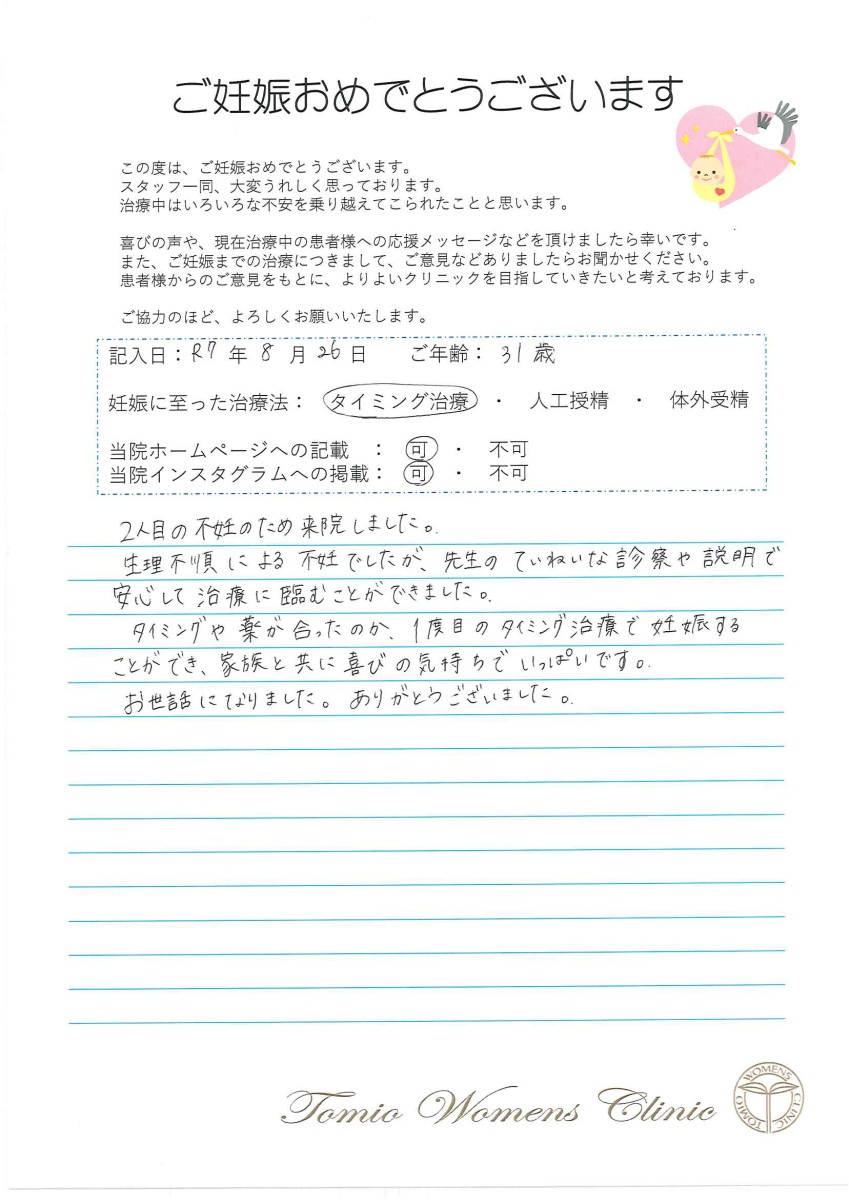 ご妊娠おめでとうございます
この度は、ご妊娠おめでとうございます。
スタッフ一同、大変うれしく思っております。
治療中はいろいろな不安を乗り越えてこられたことと思います。
喜びの声や、現在治療中の患者様への応援メッセージなどを頂けましたら幸いです。
また、ご妊娠までの治療につきまして、ご意見などありましたらお聞かせください。
患者様からのご意見をもとに、よりよいクリニックを目指していきたいと考えております。
ご協力のほど、よろしくお願いいたします。
記入日：R7年8月26日 ご年齢：31歳
妊娠に至った治療法： タイミング治療 ・ 人工授精 ・ 体外受精
当院ホームページへの記載 ： 可 ・ 不可
当院インスタグラムへの掲載： 可 ・ 不可
2人目の不妊のため来院しました。
生理不順による不妊でしたが、先生のていねいな診察や説明で
安心して治療に臨むことができました。
タイミングや薬が合ったのか、1度目のタイミング治療で妊娠する
ことができ、家族と共に喜びの気持ちでいっぱいです。
お世話になりました。ありがとうございました。
Tomio Womens Clinic
TOMIO WOMENS CLINIC